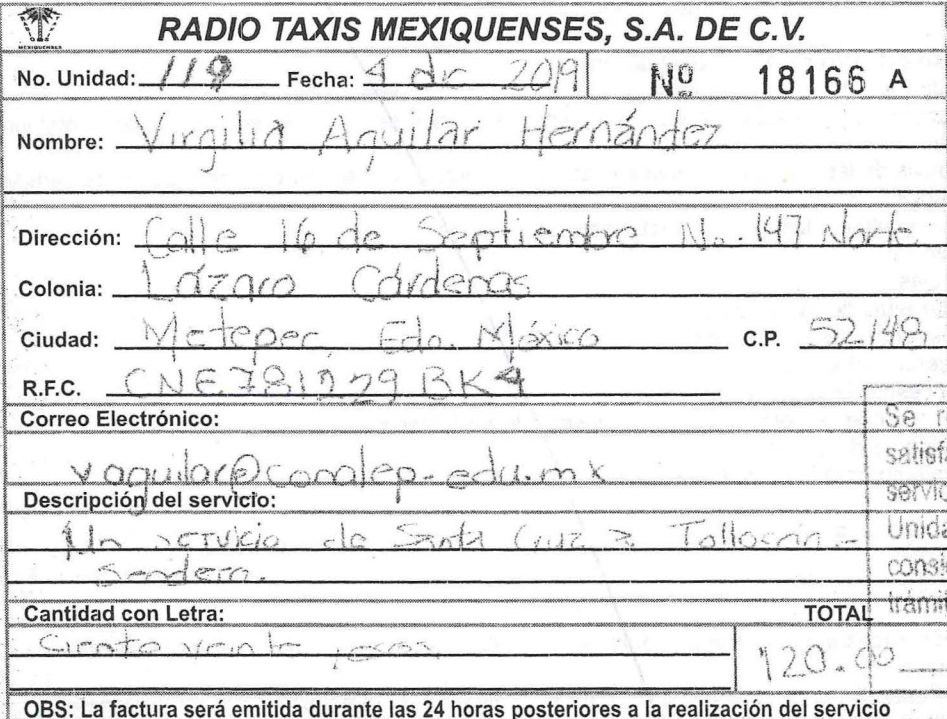 MEXIQUENSES
RADIO TAXIS MEXIQUENSES, S.A. DE C.V.
No. Unidad: 119 Fecha: 4 dic 2019 Nº 18166 A
Nombre: Virgilia Aguilar Hernández
Dirección: Calle 16 de Septiembre No. 147 Norte
Colonia: Lázaro Cárdenas
Ciudad: Metepec, Edo. México C.P. 52148
R.F.C. CNE781229BK4
Correo Electrónico:
vaguilar@conalep.edu.mx
Descripción del servicio:
Un servicio de Santa Cruz a Tollocan-
Sendero.
Cantidad con Letra: TOTAL
Ciento veinte pesos 120.00
Se
satisf
servic
Unida
consi
trámit
OBS: La factura será emitida durante las 24 horas posteriores a la realización del servicio